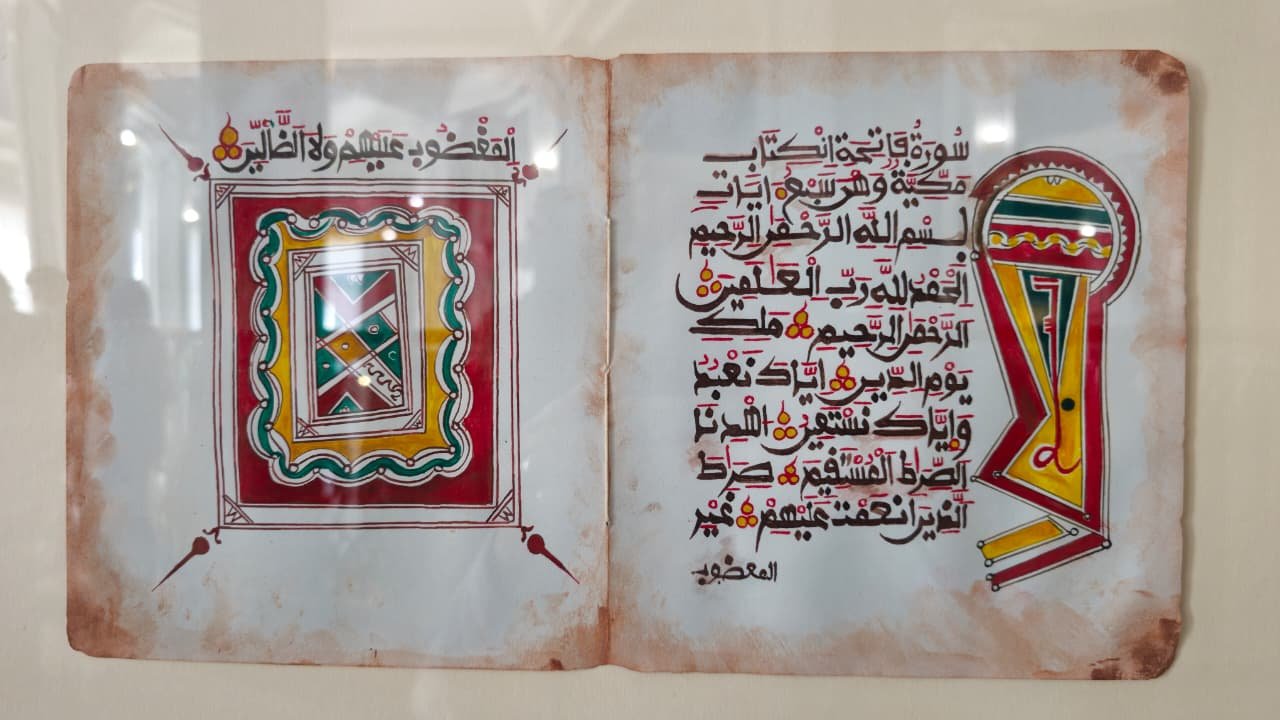 سُورَةُ فَاتِحَةِ الْكِتَابِ
مَكِّيَّة وَهْىَ سَبْعُ ايَات
بِسْمِ اللَّهِ الرَّحْمَٰنِ الرَّحِيمِ
الْحَمْدُ لِلَّهِ رَبِّ الْعَٰلَمِينَ
الرَّحْمَٰنِ الرَّحِيمِ مَلِكِ
يَوْمِ الدِّينِ إِيَّاكَ نَعْبُدُ
وَإِيَّاكَ نَسْتَعِينُ اهْدِنَا
الصِّرَٰطَ الْمُسْتَقِيمَ صِرَٰطَ
الَّذِينَ أَنْعَمْتَ عَلَيْهِمْ غَيْرِ
المغضوب
الْمَغْضُوبِ عَلَيْهِمْ وَلَا الضَّالِّينَ